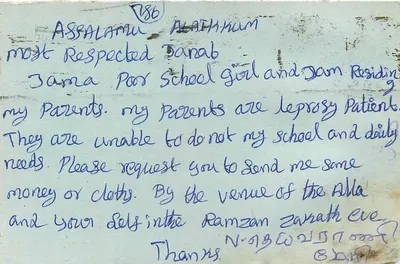 786
ASSALAMU ALAIKKUM
most Respected Janab
Jama Poor School girl and Jam Residing
my Parents. my Parents are leprosy Patient.
They are unable to do not my school and daily
needs. Please request you to send me some
money or cloths. By the venue of the Alla
and your Self in the Ramzan Zakath eve
Thanks